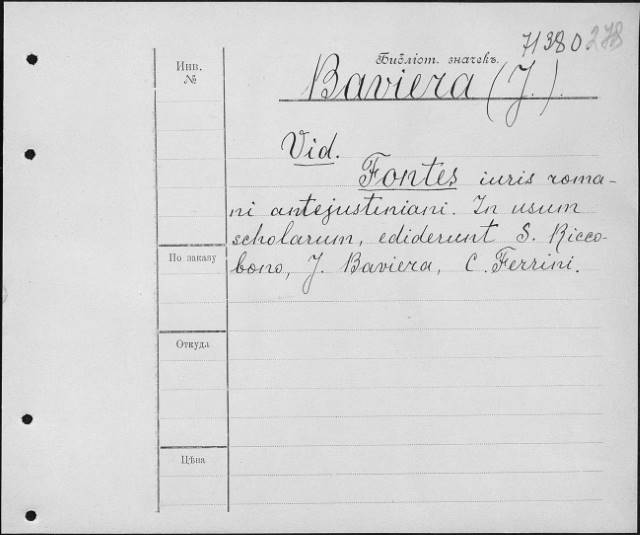 71380 278
Библіот. значекъ.
Инв.
№
Baviera (J.).
Vid.
Fontes iuris roma-
ni antejustiniani. In usum
scholarum, ediderunt S. Ricco-
bono, J. Baviera, C. Ferrini.
По заказу
Откуда
Цѣна